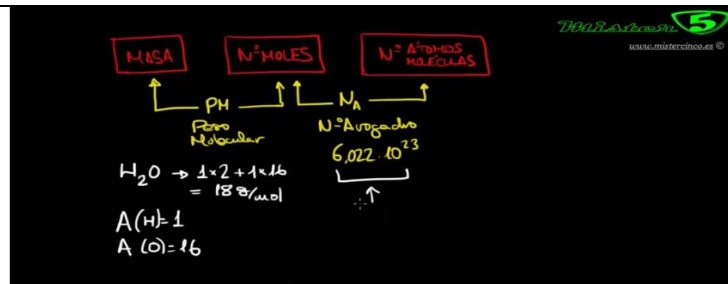 Mister 5
www.mistercinco.es ©
MASA
Nº MOLES
Nº ÁTOMOS
MOLÉCULAS
PM
NA
Peso
Molecular
Nº Avogadro
6,022·10²³
H₂O → 1×2 + 1×16
= 18 g/mol
A(H)=1
A(O)=16